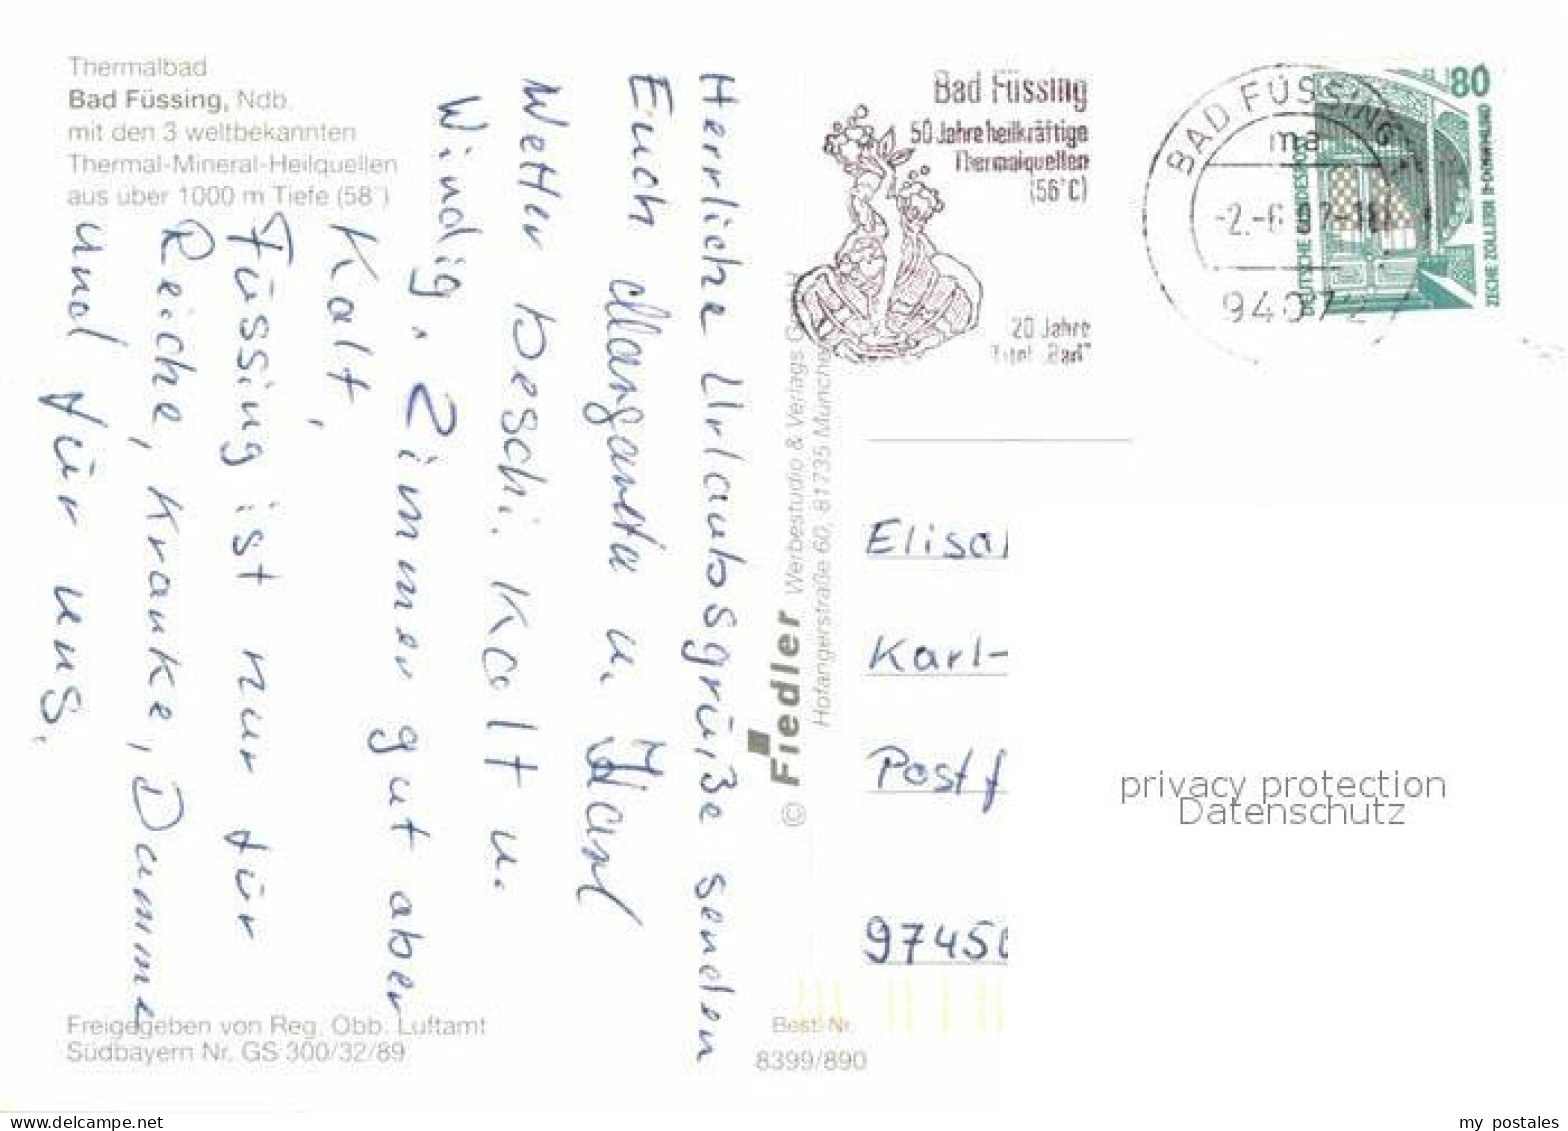 Thermalbad
Bad Füssing, Ndb.
mit den 3 weltbekannten
Thermal-Mineral-Heilquellen
aus über 1000 m Tiefe (58°)
Herrliche Urlaubsgrüße senden
Euch Margareta u. Karl
Wetter besch. Kalt u.
Windig. Zimmer gut aber
Kalt,
Füssing ist nur für
Reiche, Kranke, Dumme
und für uns.
Freigegeben von Reg. Obb. Luftamt
Südbayern Nr. GS 300/32/89
© Fiedler Werbestudio & Verlags
Hofangerstraße 60, 81735 München
Best.-Nr.
8399/890
Bad Füssing
50 Jahre heilkräftige
Thermalquellen
(56°C)
20 Jahre
Titel „Bad“
BAD FÜSSING
ma
94072
80
DEUTSCHE BUNDESPOST
ZECHE ZOLLERN II · DORTMUND
Elisa
Karl-
Postf
9745
privacy protection
Datenschutz
my postales